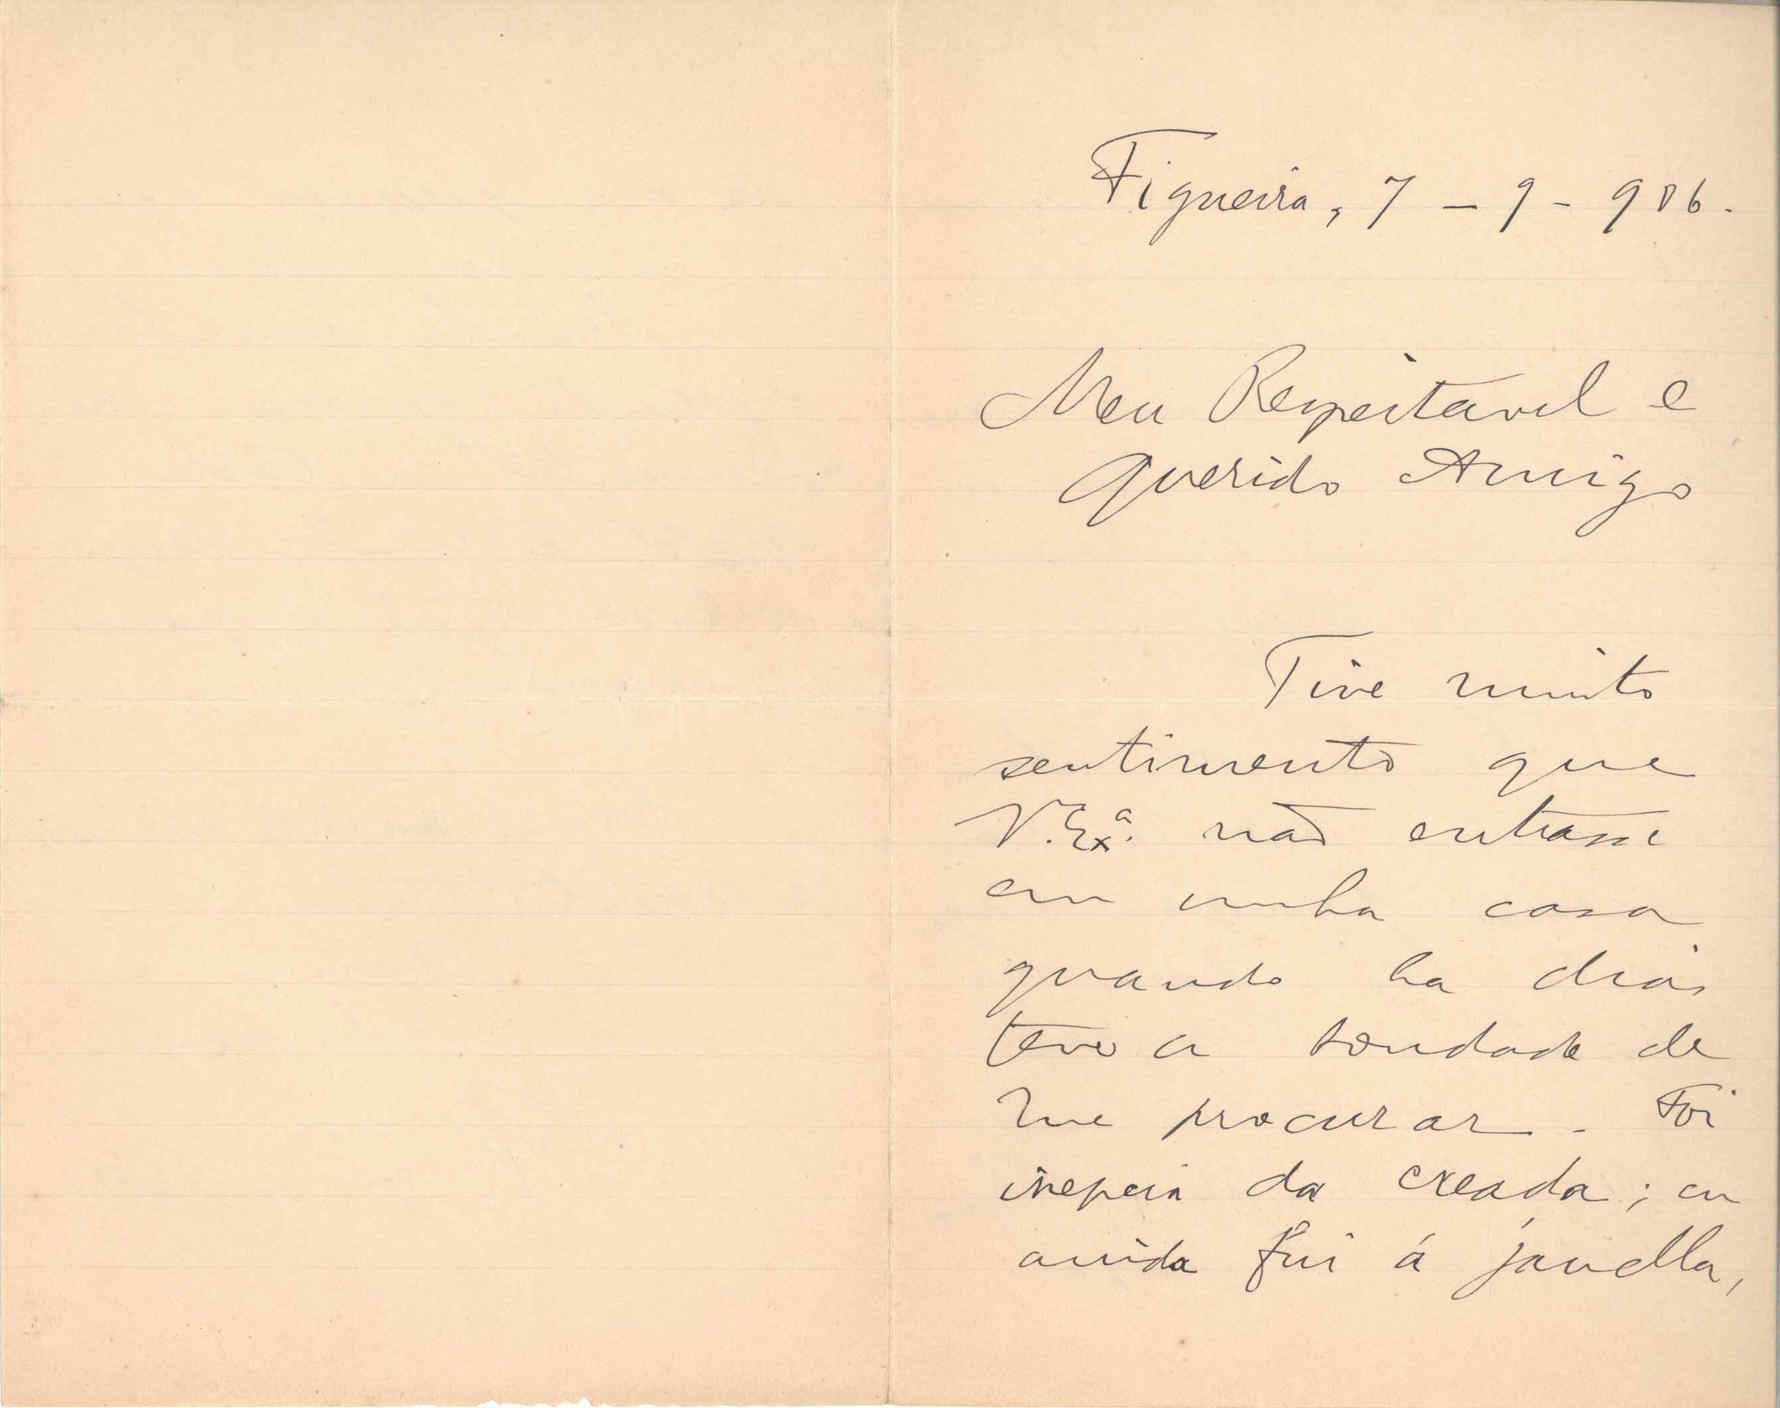 Figueira, 7 - 9 - 906.
Meu Respeitavel e
Querido Amigo
Tive muito
sentimento que
V. Exª. não entrasse
em minha casa
quando ha dias
teve a bondade de
me procurar. Foi
inepcia da creada; eu
ainda fui á janella,